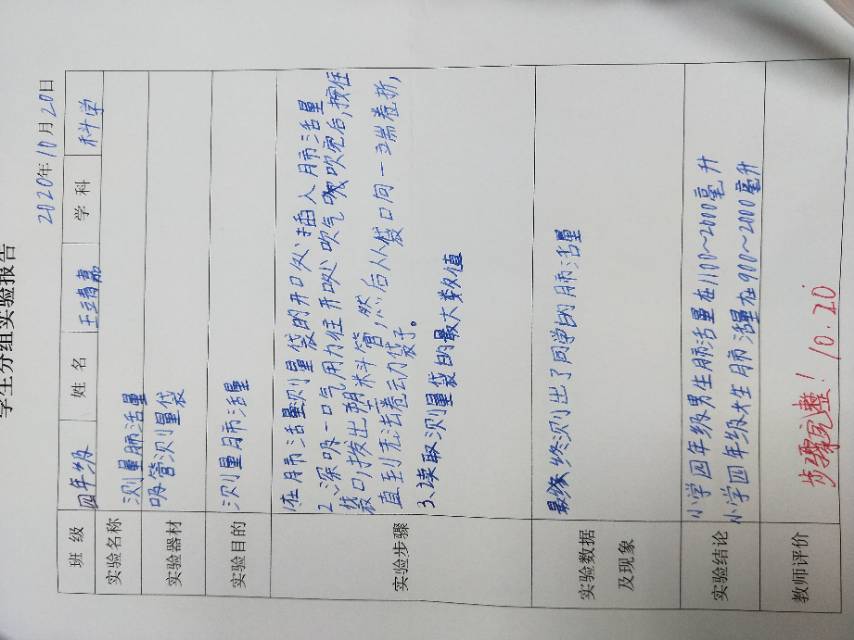 学生分组实验报告
2020年10月20日
班级 四年级 姓名 学科 科学
实验名称 测量肺活量
实验器材 吸管测量袋
实验目的 测量肺活量
实验步骤
1.在肺活量测量袋的开口处插入肺活量
2、深吸一口气用力往开口处吹气 吹完后,按住
袋口,拔出塑料管,然后从袋口向一端卷折,
直到无法卷动袋子。
3、读取测量袋的最大数值
实验数据及现象
最终测出了同学的肺活量
实验结论
小学四年级男生肺活量在1100~2000毫升
小学四年级女生肺活量在900~2000毫升
教师评价
步骤完整! 10.20